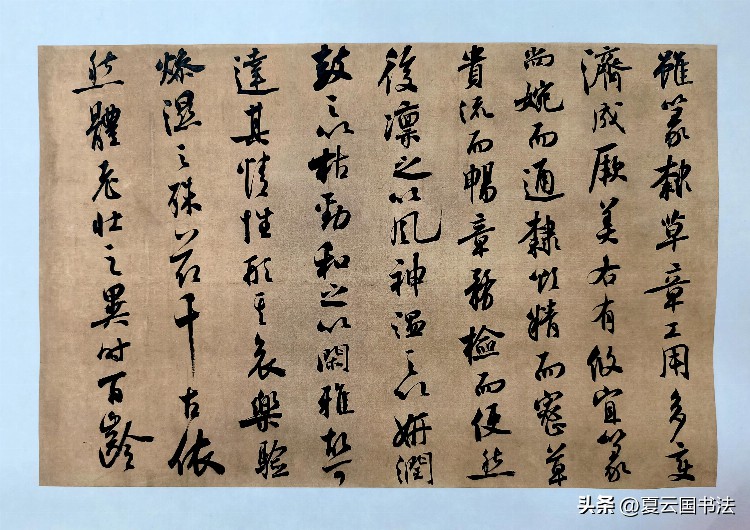 雖篆隸草章工用多變
濟成厥美右有攸宜篆
尚婉而通隸欲精而密草
貴流而暢章務檢而便然
後凜之以風神溫之以妍潤
鼓之以枯勁和之以閑雅故可
達其情性形其哀樂驗
燥濕之殊節千古依
然體老壯之異時百齡
头条 @夏云国书法